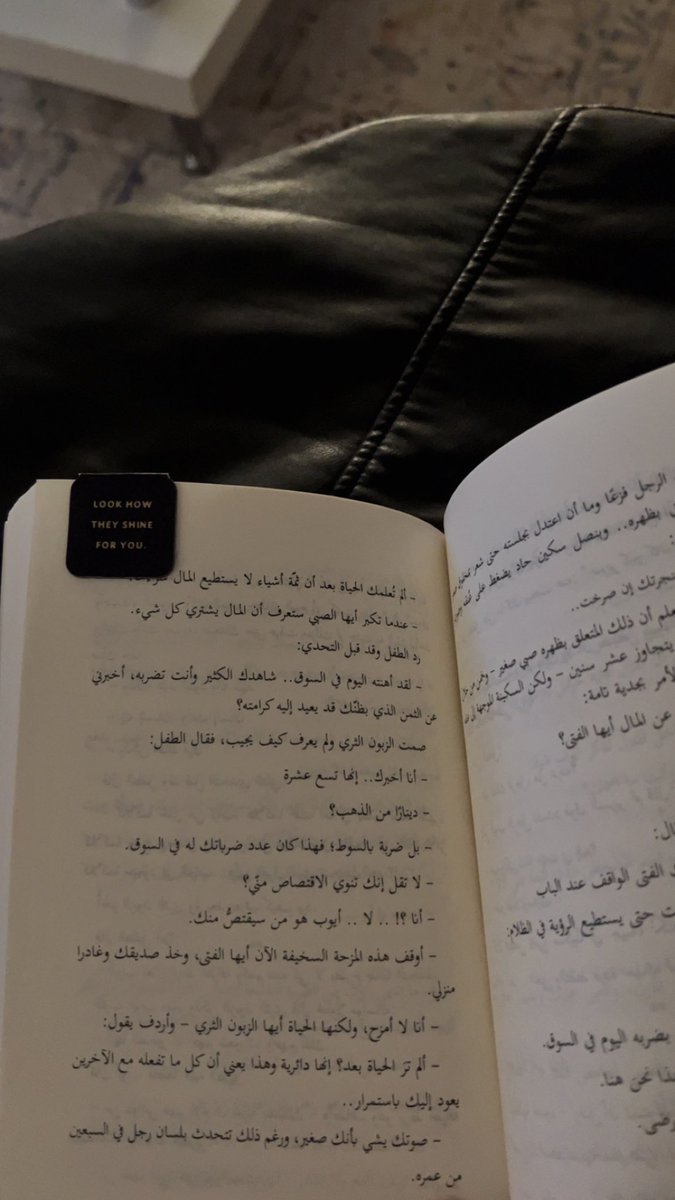 LOOK HOW
THEY SHINE
FOR YOU.
الرجل فزعًا وما أن اعتدل بجلسته حتى شعر
بظهره.. وبنصل سكين حاد يضغط على
إن صرخت..
أن ذلك المتعلق بظهره صبي صغير -
يتجاوز عشر سنين - ولكن السكينة الموجهة إلى
بجدية تامة:
عن المال أيها الفتى؟
الفتى الواقف عند الباب
حتى يستطيع الرؤية في الظلام:
بضربه اليوم في السوق.
نحن هنا.
- ألم تُعلمك الحياة بعد أن ثمّة أشياء لا يستطيع المال
- عندما تكبر أيها الصبي ستعرف أن المال يشتري كل شيء.
رد الطفل وقد قبل التحدي:
- لقد أهنته اليوم في السوق.. شاهدك الكثير وأنت تضربه، أخبرني
عن الثمن الذي بظنّك قد يعيد إليه كرامته؟
صمت الزبون الثري ولم يعرف كيف يجيب، فقال الطفل:
- أنا أخبرك.. إنها تسع عشرة
- دينارًا من الذهب؟
- بل ضربة بالسوط؛ فهذا كان عدد ضرباتك له في السوق.
- لا تقل إنك تنوي الاقتصاص منّي؟
- أنا ؟! .. لا .. أيوب هو من سيقتصُّ منك.
- أوقف هذه المزحة السخيفة الآن أيها الفتى، وخذ صديقك وغادرا
منزلي.
- أنا لا أمزح، ولكنها الحياة أيها الزبون الثري - وأردف يقول:
- ألم ترَ الحياة بعد؟ إنها دائرية وهذا يعني أن كل ما تفعله مع الآخرين
يعود إليك باستمرار..
- صوتك يشي بأنك صغير، ورغم ذلك تتحدث بلسان رجل في السبعين
من عمره.